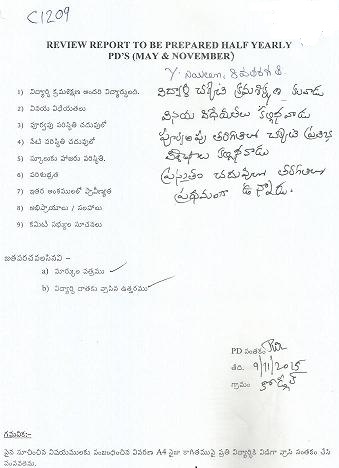 C1209
REVIEW REPORT TO BE PREPARED HALF YEARLY
PD'S (MAY & NOVEMBER)
1) విద్యార్థి క్రమశిక్షణ అందరి విద్యార్థుంది.
2) వినయ విధేయతలు
3) పూర్వపు పరిస్థితి చదువులో
4) నేటి పరిస్థితి చదువులో
5) స్కూలుకు హాజరు పరిస్థితి.
6) పరిశుభ్రత
7) ఇతర అంశములలో ప్రావీణ్యత
8) అభిప్రాయాలు / సలహాలు
9) కమిటి సభ్యుల సూచనలు
విద్యార్థి చక్కటి క్రమశిక్షణ కలవాడు
వినయ విధేయతలు కల్గినవాడు
పూర్వపు తరగతిలో చక్కటి ప్రతిభ
కల్గినవాడు
ప్రస్తుతం చదువులో తరగతిలో
ప్రథమంగా ఉన్నాడు.
జతపరచవలసినవి -
a) మార్కుల పత్రము
b) విద్యార్థి దాతకు వ్రాసిన ఉత్తరము
PD సంతకం
తేది. 9/11/2015
గ్రామం
గమనిక:-
పైన సూచించిన విషయములకు సంబంధించిన వివరణ A4 సైజు కాగితముపై ప్రతి విద్యార్థికి విడిగా వ్రాసి సంతకం చేసి
పంపవలెను.